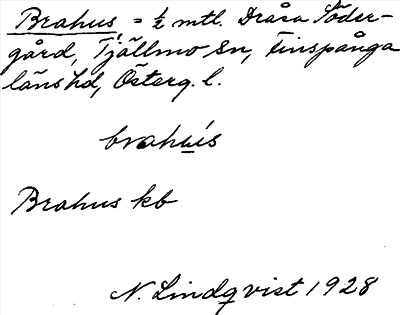 Brahus = ½ mtl. Dråsa Söder-
gård, Tjällmo sn, Finspånga
läns hd, Österg. l.
brahu̲´s
Brahus kb
N. Lindqvist 1928